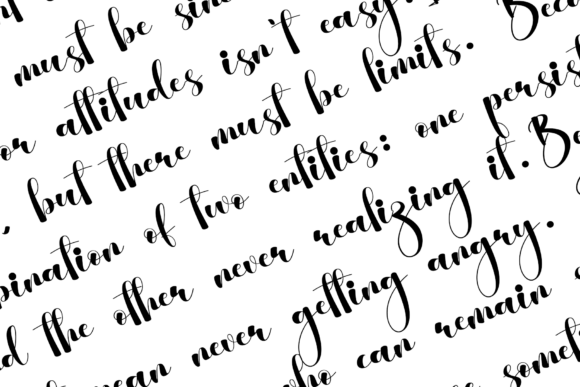 must be sinc
or attitudes isn't easy.
, but there must be limits. Beca
bination of two entities: one persist
d the other never realizing it. Be
mean never getting angry.
who can remain
somet